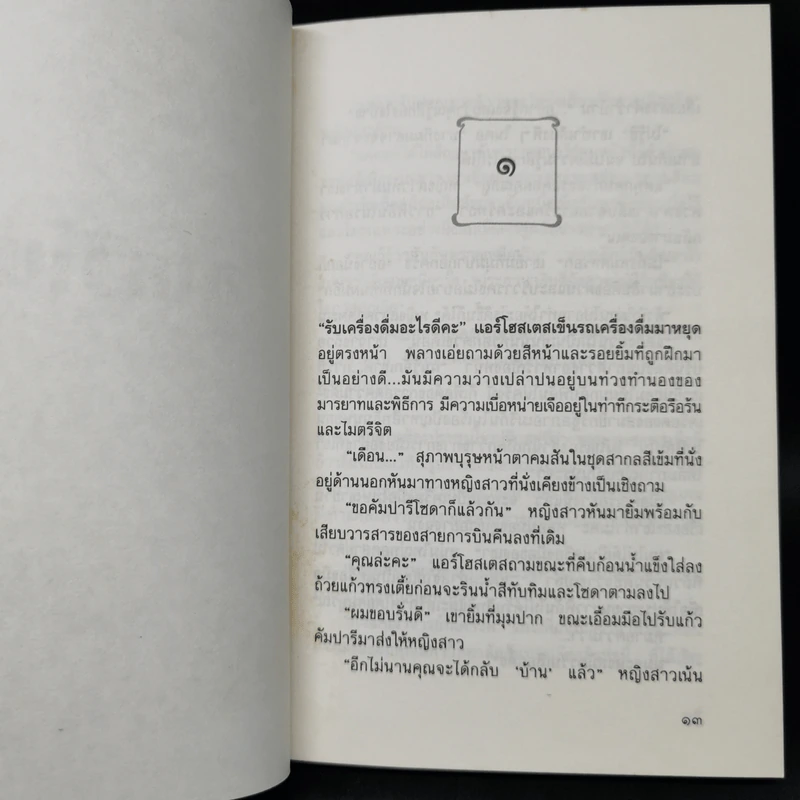 ๑
“รับเครื่องดื่มอะไรดีคะ” แอร์โฮสเตสเข็นรถเครื่องดื่มมาหยุด
อยู่ตรงหน้า พลางเอ่ยถามด้วยสีหน้าและรอยยิ้มที่ถูกฝึกมา
เป็นอย่างดี...มันมีความว่างเปล่าปนอยู่บนท่วงทำนองของ
มารยาทและพิธีการ มีความเบื่อหน่ายเจืออยู่ในท่าทีกระตือรือร้น
และไมตรีจิต
“เดือน...” สุภาพบุรุษหน้าตาคมสันในชุดสากลสีเข้มที่นั่ง
อยู่ด้านนอกหันมาทางหญิงสาวที่นั่งเคียงข้างเป็นเชิงถาม
“ขอคัมปารีโซดาก็แล้วกัน” หญิงสาวหันมายิ้มพร้อมกับ
เสียบวารสารของสายการบินคืนลงที่เดิม
“คุณล่ะคะ” แอร์โฮสเตสถามขณะที่คีบก้อนน้ำแข็งใส่ลง
ถ้วยแก้วทรงเตี้ยก่อนจะรินน้ำสีทับทิมและโซดาตามลงไป
“ผมขอบรั่นดี” เขายิ้มที่มุมปาก ขณะเอื้อมมือไปรับแก้ว
คัมปารีมาส่งให้หญิงสาว
“อีกไม่นานคุณจะได้กลับ ‘บ้าน’ แล้ว” หญิงสาวเน้น
๑๓